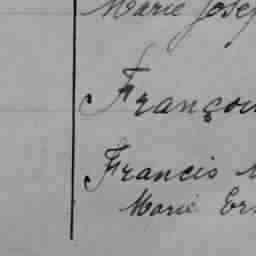 Marie Josep
Françoi
Francis
Marie Er